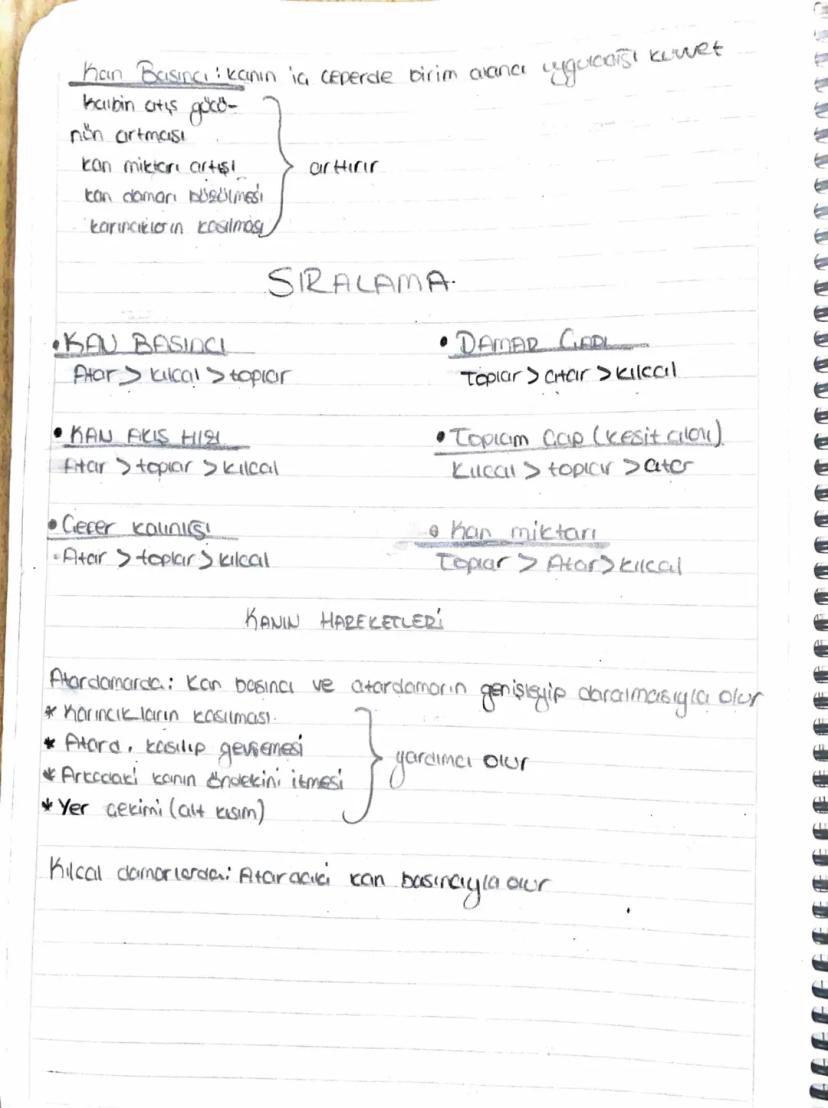 Kan Basıncı: kanın iç çeperde birim alana uyguladığı kuvvet
kalbin atış gücü-
nün artması
kan miktarı artışı
kan damarı büzülmesi
karıncıkların kasılması
arttırır
SIRALAMA.
• KAN BASINCI
Atar > kılcal > toplar
• DAMAR ÇAPI
Toplar > atar > kılcal
• KAN AKIŞ HIZI
Atar > toplar > kılcal
• Toplam Çap (kesit alanı)
Kılcal > toplar > atar
• Çeper kalınlığı
- Atar > toplar > kılcal
• Kan miktarı
Toplar > Atar > kılcal
KANIN HAREKETLERİ
Atardamarda: Kan basıncı ve atardamarın genişleyip daralmasıyla olur
* Karıncıkların kasılması.
* Atard. kasılıp gevşemesi
* Arkadaki kanın öndekini itmesi
* Yer çekimi (alt kısım)
yardımcı olur
Kılcal damarlarda: Atardaki kan basıncıyla olur